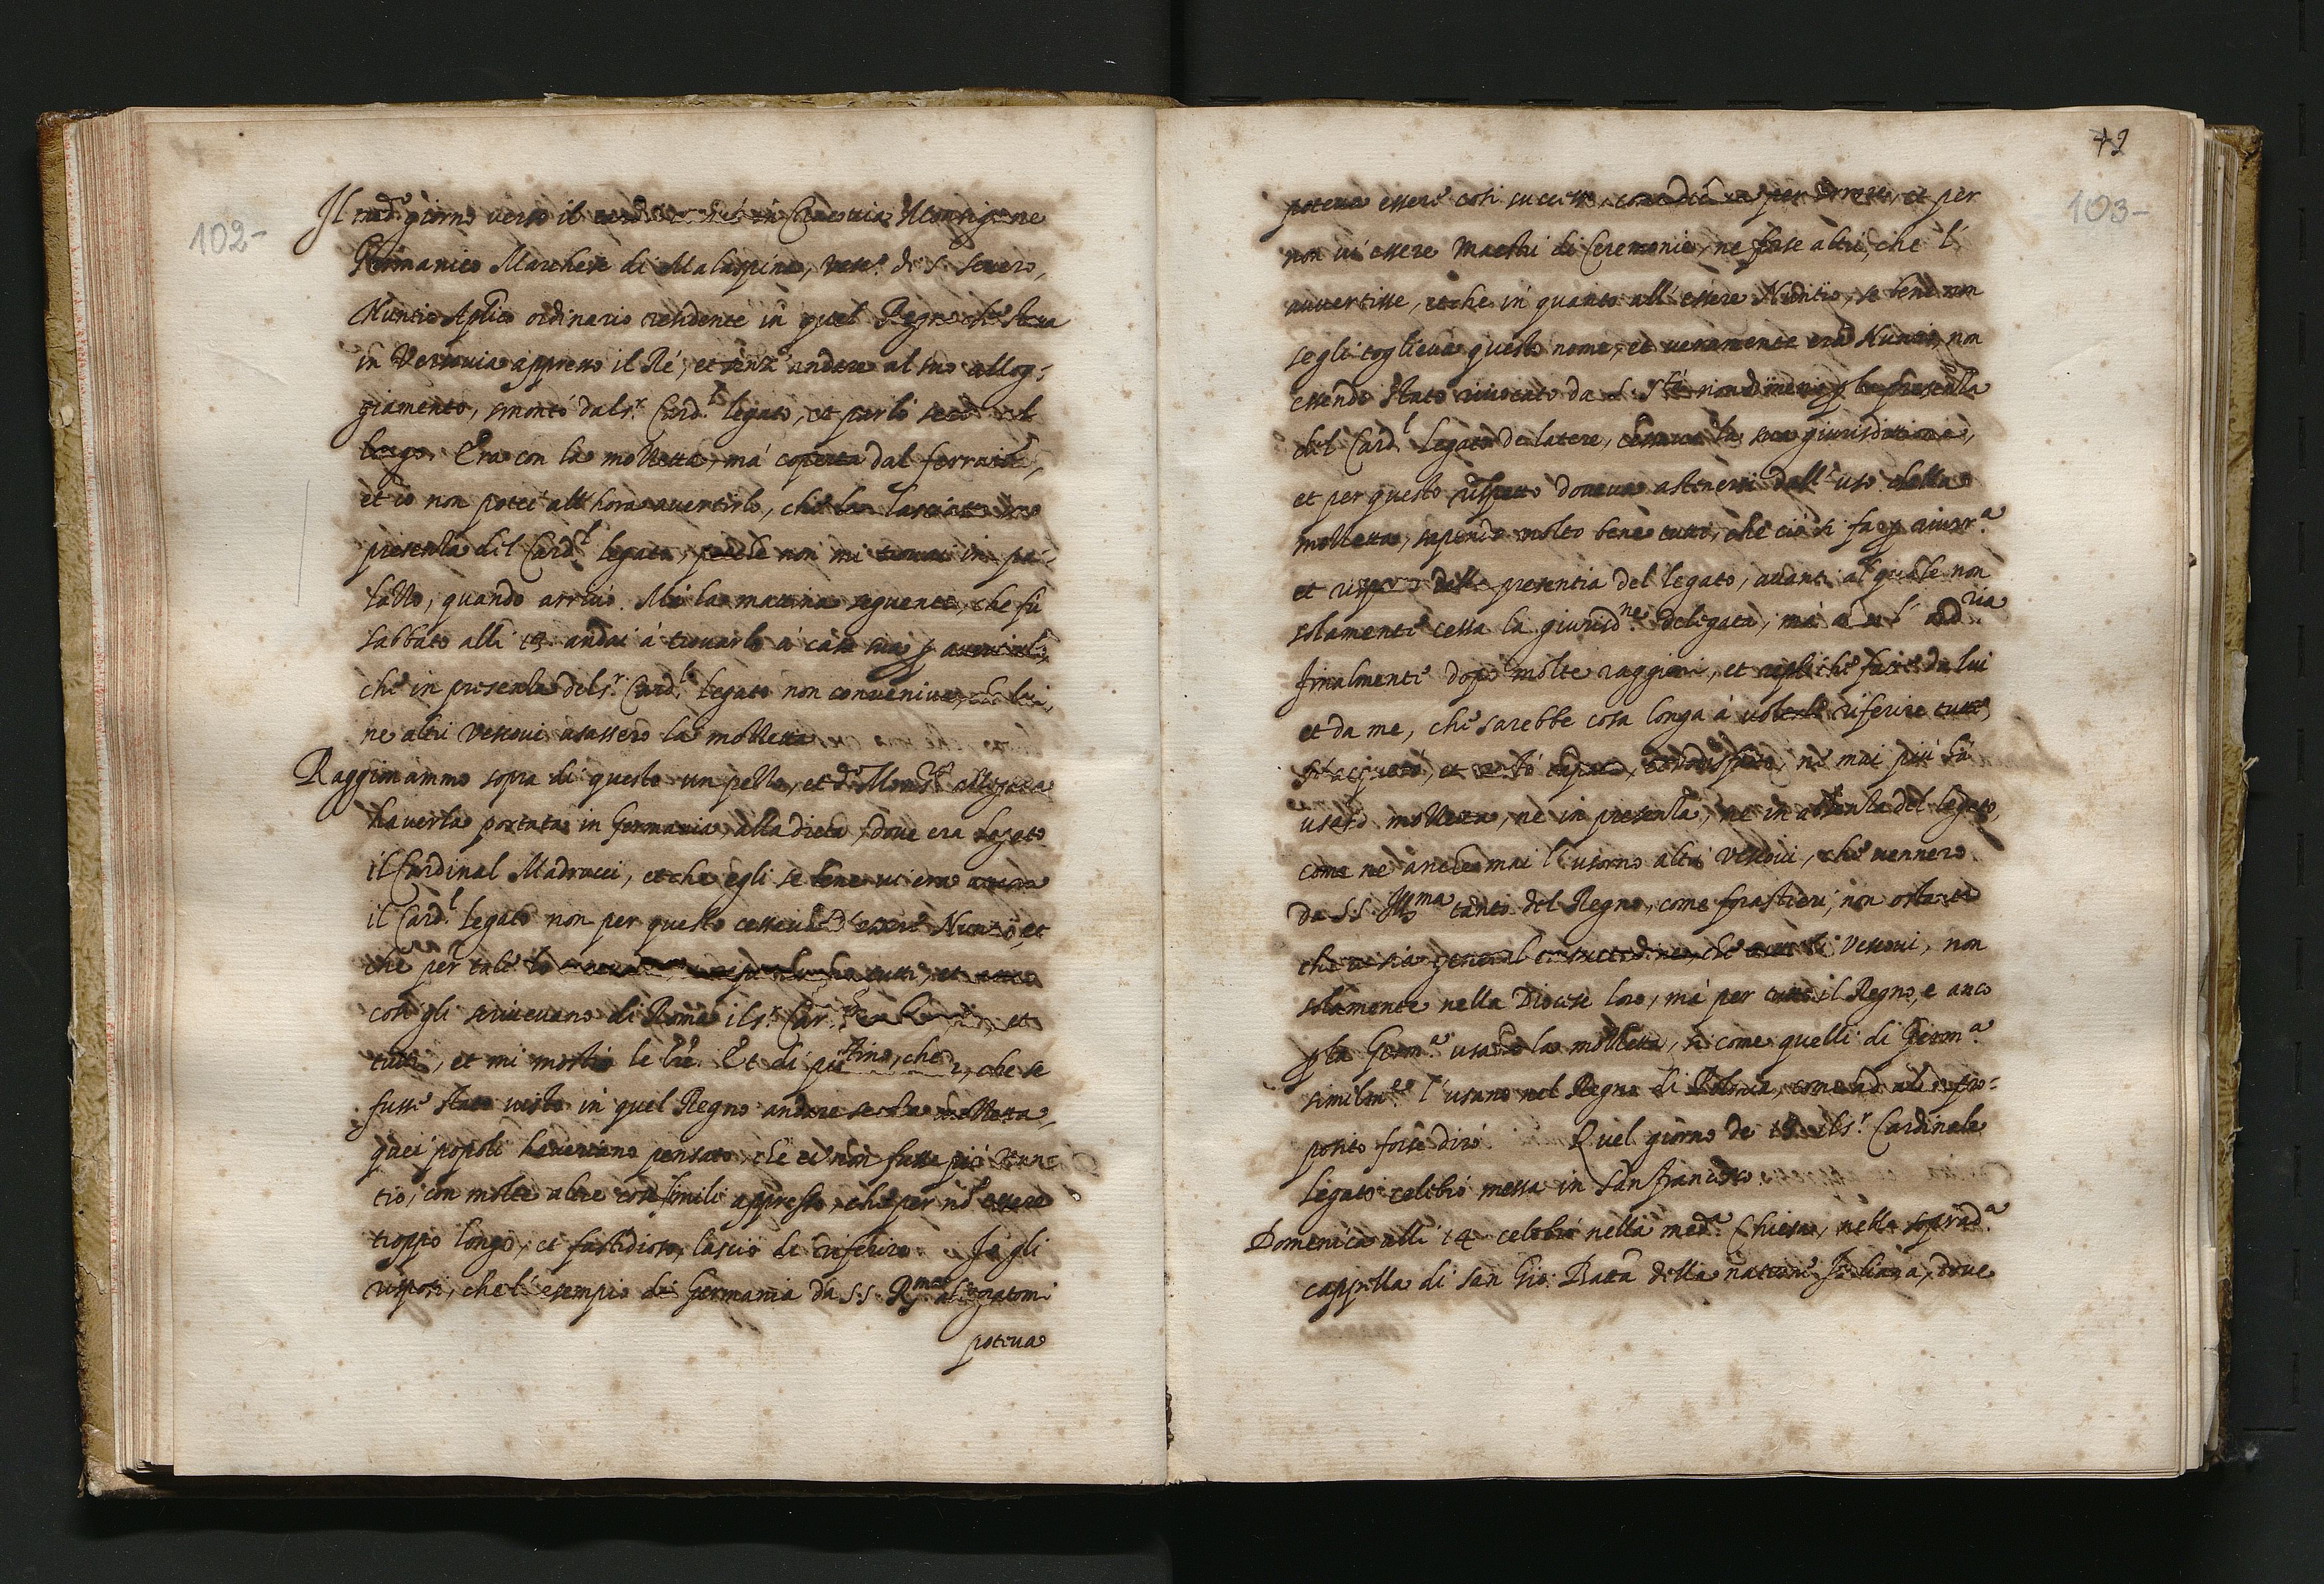 102-
Il med.º giorno verso il in Cracovia Monsignore
Germanico Marchese di Malaspina, Vesc.º di S. Severo,
Nuntio Aplico ordinario residente in quel Regno che stava
in Versovia appresso il Ré, et senz' andare al suo allog-
giamento, smontó dal s.r Card.l legato, et parlò seco
longo. Era con la mozzetta, má coperta dal ferraiolo,
et io non potei all' hora avertirlo, che la lasciasse in
presenza del Card.l legato, perche non mi trovai in pa-
lazzo, quando arrivó. Má la matina seguente, che fú
sabbato alli 13 andai á trovarlo á casa sua p avertirlo,
che in presenza del s.r Card.l legato non conveniva, ch lui,
ne altri Vescovi usassero la mozzetta
Raggionammo sopra di questo un pezzo, et d.º Mons.r allegava
haverla portata in Germania alla dieta, dove era legato
il Cardinal Madrucci, et che egli se bene vi era ancora
il Card.l legato non per questo cessava d' essere Nuntio, et
che per tale lo tutti, et
cosi gli scrivevano di Roma il s.r Car. et
tutti, et mi mostró le lre. Et di piú che se
fusse stato visto in quel Regno andare senza mozzetta,
quei popoli haveriano pensato che ei non fusse piú Nun-
tio, con molte altre cose simili appresso, che per nõ essere
troppo longo, et fastidioso, lascio di riferire Io gli
risposi, che l' esempio di Germania da S.S. R.ma allegatomi
poteva
72
103-
poteva essere cosi successo per errore, et per
non vi essere Maestri di Ceremonie, ne forse altri, che l'
avvertisse, et che in quanto all' essere Nuntio, se bene non
se gli toglieva questo nome, et veramente era Nuntio, non
essendo stato rivocato da S. S.tá nondimeno p la presenza
del Card.l Legato de latere, cessava la sua giurisditione,
et per questo rispetto doveva astenersi dall' uso della
mozzetta, sapendo molto bene tutto, che ció si fa p river.a
et rispetto della presentia del legato, avanti al quale non
solamente cessa la giurisd.ne delegata, má l' ord.ria
Finalmente dopó molte raggioni, et repliche fatte da lui
et da me, che sarebbe cosa longa á volerle riferire tutte
s' acquetó, et restó capace, et sodisfatto, né mai piú há
usato mozzetta, ne in presenza, ne in absenza del legato,
come ne anche mai l' usorno altri Vescovi, che vennero
da S.S. Ill.ma tanto del Regno, come forastieri, non ostante
che vi sia general consuetudine, che tutti li Vescovi, non
solamente nella Diocese loro, má per tutto il Regno, e anco
p la Germ.a usano la mozzetta, si come quelli di Germ.a
similm.te l' usano nel Regno di Polonia, come ad altro pro-
posito forse diró Quel giorno de 13 il s.r Cardinale
Legato celebró messa in San Francesco
Domenica alli 14 celebró nella med.a Chiesa, nella soprad.a
cappella di San Gio: Batta della natione Italiana, dove